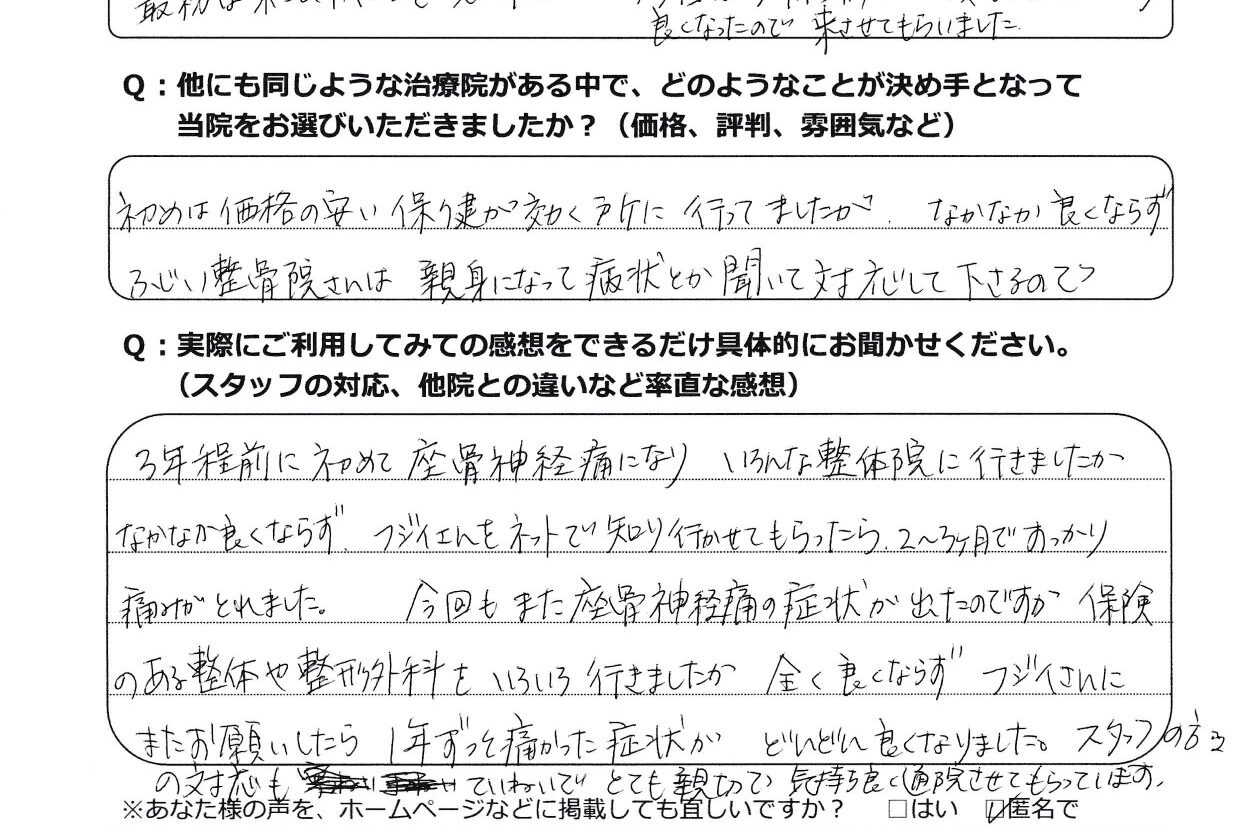 良くなったので 来させてもらいました
Q：他にも同じような治療院がある中で、どのようなことが決め手となって
当院をお選びいただきましたか？（価格、評判、雰囲気など）
初めは価格の安い保健が効く所に 行ってましたが、なかなか良くならず
ふじい整骨院さんは 親身になって病状とか聞いて対応して下さるので
Q：実際にご利用してみての感想をできるだけ具体的にお聞かせください。
（スタッフの対応、他院との違いなど率直な感想）
3年程前に初めて座骨神経痛になり いろんな整体院に行きましたか
なかなか良くならず、フジイさんをネットで知り行かせてもらったら、2～3ヶ月ですっかり
痛みがとれました。 今回もまた座骨神経痛の症状が出たのですが 保険
のある整体や整形外科を いろいろ行きましたか 全く良くならず フジイさんに
またお願いしたら 1年ずっと痛かった症状が どんどん良くなりました。スタッフの方
の対応も ていねいで とても親切で 気持ち良く通院させてもらっています。
※あなた様の声を、ホームページなどに掲載しても宜しいですか？ □はい ☑匿名で